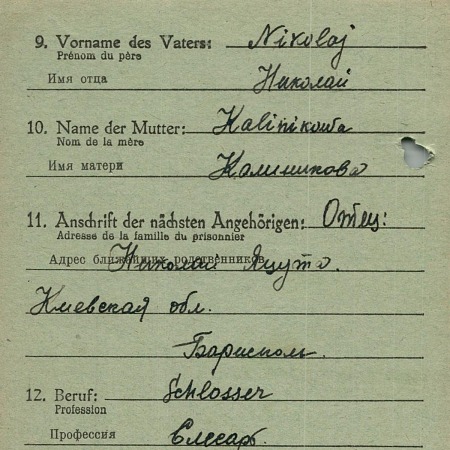 9. Vorname des Vaters: Nikolaj
Prénom du père
Имя отца Николай
10. Name der Mutter: Kalinikowa
Nom de la mère
Имя матери Калиникова
11. Anschrift der nächsten Angehörigen: Отец:
Adresse de la famille du prisonnier
Адрес ближайших родственников Николай Яцута.
Киевская обл.
Барисполь.
12. Beruf: Schlosser
Profession
Профессия Слесарь.